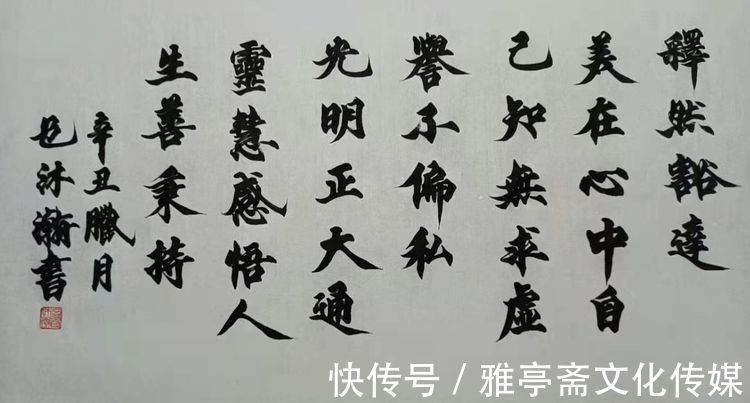 釋然豁達
美在心中自
己知無求虛
譽不偏私
光明正大通
靈慧感悟人
生善秉持
辛丑臘月
包沐瀚書
快传号 / 雅亭斋文化传媒